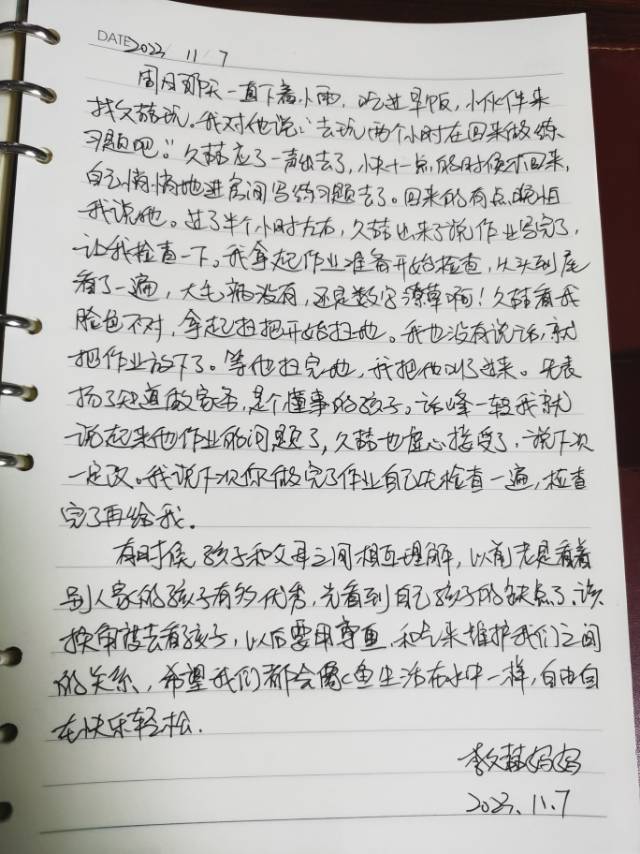 DATE 2023 / 11 / 7
周日那天一直下着小雨，吃过早饭，小伙伴来
找久喆玩。我对他说："去玩两个小时在回来做练
习题吧。"久喆应了一声出去了，小快十一点的时候才回来，
自己悄悄地进房间写练习题去了。回来的有点晚怕
我说他。过了半个小时左右，久喆出来了说作业写完了，
让我检查一下。我拿起作业准备开始检查，从头到尾
看了一遍，大毛病没有，还是数字潦草啊！久喆看我
脸色不对，拿起扫把开始扫地。我也没有说话，就
把作业放下了。等他扫完地，我把他叫了过来。先表
扬了知道做家务，是个懂事的孩子。话峰一转我就
说起来他作业的问题了，久喆也虚心接受了，说下次
一定改。我说下次你做完了作业自己先检查一遍，检查
完了再给我。
有时候，孩子和父母之间相互理解，以前老是看着
别人家的孩子有多优秀，先看到自己孩子的缺点了。该
换角度去看孩子，以后要用尊重，和气来维护我们之间
的关系，希望我们都会像鱼生活在水中一样，自由自
在快乐轻松。
李久喆妈妈
2023.11.7